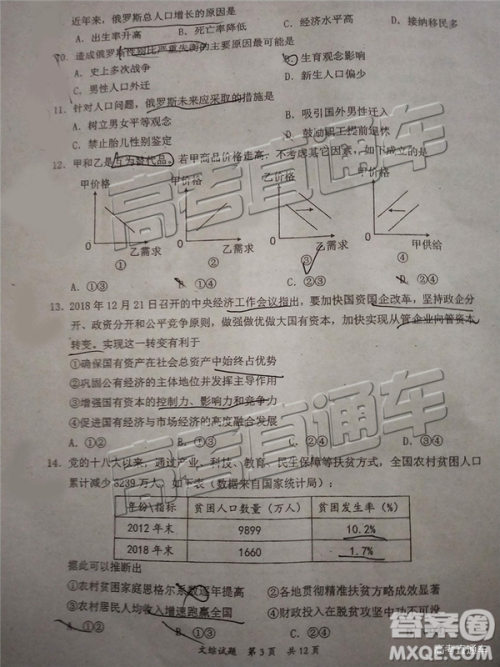 近年来，俄罗斯总人口增长的原因是
A. 出生率升高 B. 死亡率降低 C. 经济水平高 D. 接纳移民多
10. 造成俄罗斯性别比严重失衡的主要原因最可能是
A. 史上多次战争 B. 生育观念影响
C. 男性人口外迁 D. 新生人口偏少
11. 针对人口问题，俄罗斯未来应采取的措施是
A. 树立男女平等观念 B. 吸引国外男性迁入
C. 禁止胎儿性别鉴定 D. 鼓励职工提前退休
12. 甲和乙是互为替代品，若甲商品价格走高，不考虑其它因素，如下成立的是
甲价格 甲价格 乙价格 甲价格
0 0 0 0
乙需求 乙需求 乙需求 甲供给
① ② ③ ④
A. ①③ B. ①④ C. ②③ D. ②④
13. 2018 年 12 月 21 日召开的中央经济工作会议指出，要加快国资国企改革，坚持政企分
开、政资分开和公平竞争原则，做强做优做大国有资本，加快实现从管企业向管资本
转变。实现这一转变有利于
①确保国有资产在社会总资产中始终占优势
②巩固公有经济的主体地位并发挥主导作用
③增强国有资本的控制力、影响力和竞争力
④促进国有经济与市场经济的高度融合发展
A. ①② B. ①③ C. ②④
14. 党的十八大以来，通过产业、科技、教育、民生保障等扶贫方式，全国农村贫困人口
累计减少 8239 万人。如下表（数据来自国家统计局）：
年份\指标 贫困人口数量（万人） 贫困发生率（%）
2012 年末 9899 10.2%
2018 年末 1660 1.7%
据此可以推断出
①农村贫困家庭恩格尔系数逐年提高 ②各地贯彻精准扶贫方略成效显著
③农村居民人均收入增速跑赢全国 ④财政投入在脱贫攻坚中至
A. ①② B. ①③ C. ②④
文综试题 第 3 页 共 12 页
高考直通车
高考直通车
高考直通车
答案圈